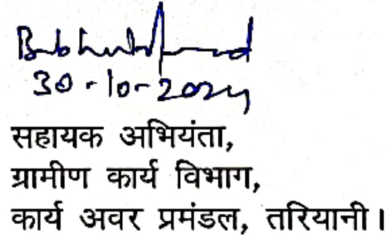 30-10-2024
सहायक अभियंता,
ग्रामीण कार्य विभाग,
कार्य अवर प्रमंडल, तरियानी।